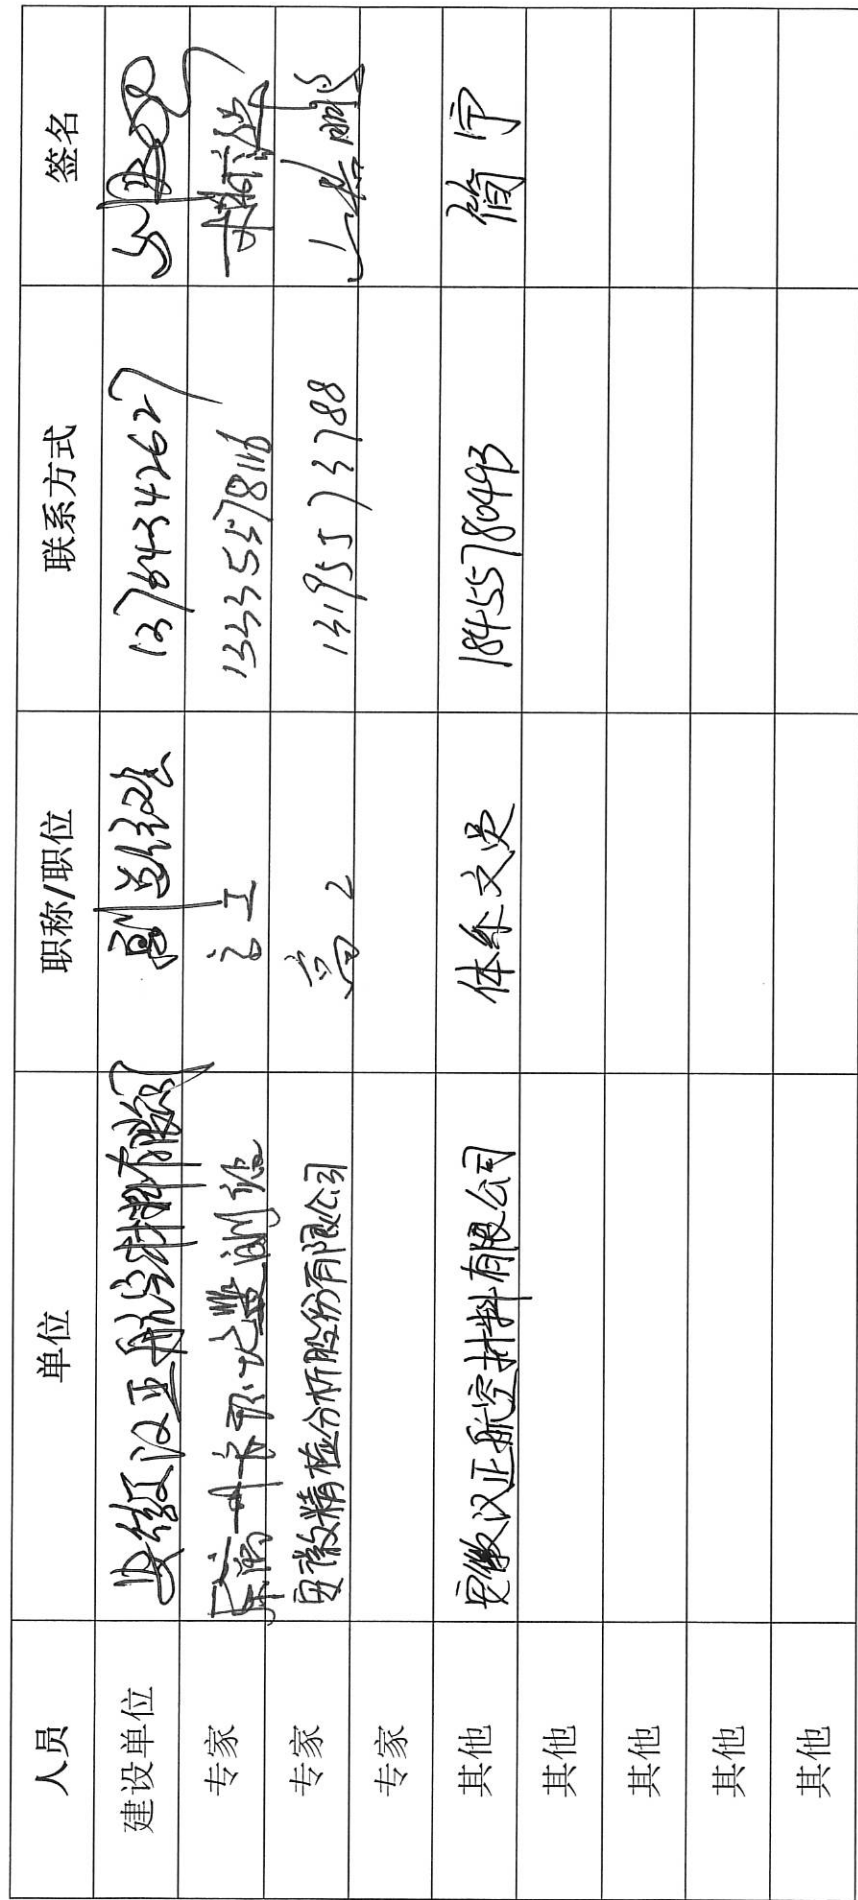 人员 单位 职称/职位 联系方式 签名
建设单位 安徽汉正航空材料有限公司 副总经理 13764342627
专家 监测站 高工 13335578116
专家 安徽精检分析股份有限公司 高工 13195573788
专家
其他 安徽汉正航空材料有限公司 体系文员 18455780493 简宁
其他
其他
其他
其他